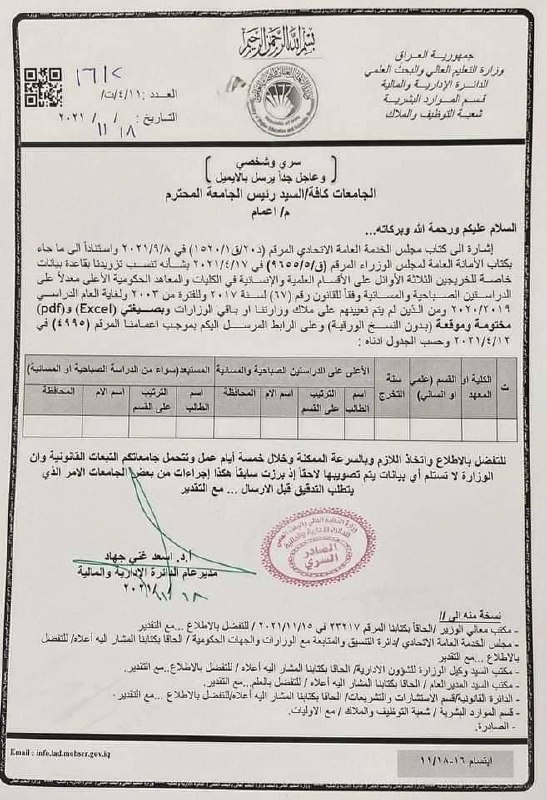 بسم الله الرحمن الرحيم
جمهورية العراق
وزارة التعليم العالي والبحث العلمي
الدائرة الإدارية والمالية
قسم الموارد البشرية
شعبة التوظيف والملاك
العدد: ت/٤/١١/
التاريخ: ١٨/١١/٢٠٢١
سري وشخصي
وعاجل جداً يرسل بالايميل
الجامعات كافة/السيد رئيس الجامعة المحترم
م/ اعمام
السلام عليكم ورحمة الله وبركاته...
إشارة الى كتاب مجلس الخدمة العامة الاتحادي المرقم (د٢٠/ق/١٥٢٠/١) في ٢٠٢١/٩/٨ واستناداً الى ما جاء
بكتاب الأمانة العامة لمجلس الوزراء المرقم (ق/٩٦٥٥/٥) في ٢٠٢١/٤/١٧ بشأنه تنسب تزويدنا بقاعدة بيانات
خاصة للخريجين الثلاثة الأوائل على الأقسام العلمية والإنسانية في الكليات والمعاهد الحكومية الأعلى معدلاً على
الدراستين الصباحية والمسانية وفقاً للقانون رقم (٦٧) لسنة ٢٠١٧ وللفترة من ٢٠٠٣ ولغاية العام الدراسي
٢٠٢٠/٢٠١٩ ومن الذين لم يتم تعيينهم على ملاك وزارتنا او باقي الوزارات وبصيغتي (Excel) و(pdf)
مختومة وموقعة (بدون النسخ الورقية) وعلى الرابط المرسل اليكم بموجب اعمامنا المرقم (٤٩٩٥) في
٢٠٢١/٤/١٢ وحسب الجدول ادناه :
ت
الكلية او المعهد
القسم (علمي او انساني)
سنة التخرج
الأعلى على الدراستين الصباحية والمسانية
اسم الطالب
الترتيب على القسم
اسم الام
المحافظة
المستبعد(سواء من الدراسة الصباحية او المسانية)
اسم الطالب
الترتيب على القسم
اسم الام
المحافظة
للتفضل بالاطلاع واتخاذ اللازم وبالسرعة الممكنة وخلال خمسة أيام عمل وتتحمل جامعاتكم التبعات القانونية وان
الوزارة لا تستلم أي بيانات يتم تصويبها لاحقاً إذ برزت سابقاً هكذا إجراءات من بعض الجامعات الامر الذي
يتطلب التدقيق قبل الارسال ... مع التقدير
الصادر
السري
أ.د. اسعد غني جهاد
مدير عام الدائرة الإدارية والمالية
١٨/١١/٢٠٢١
نسخة منه الى //
- مكتب معالي الوزير /الحاقاً بكتابنا المرقم ٢٣٢١٧ في ٢٠٢١/١١/١٥ / للتفضل بالاطلاع ...مع التقدير
- مجلس الخدمة العامة الاتحادي /دائرة التنسيق والمتابعة مع الوزارات والجهات الحكومية / الحاقاً بكتابنا المشار اليه أعلاه/ للتفضل
بالاطلاع ...مع التقدير
- مكتب السيد وكيل الوزارة للشؤون الادارية/ الحاقاً بكتابنا المشار اليه أعلاه / للتفضل بالاطلاع...مع التقدير.
- مكتب السيد المدير العام / الحاقاً بكتابنا المشار اليه أعلاه / للتفضل بالعلم...مع التقدير.
- الدائرة القانونية/قسم الاستشارات والتشريعات/ الحاقاً بكتابنا المشار اليه أعلاه/للتفضل بالاطلاع ...مع التقدير.
- قسم الموارد البشرية / شعبة التوظيف والملاك / مع الاوليات.
- الصادرة.
Email : info.iad.mohesr.gov.iq
ابتسام ١٦-١١/١٨